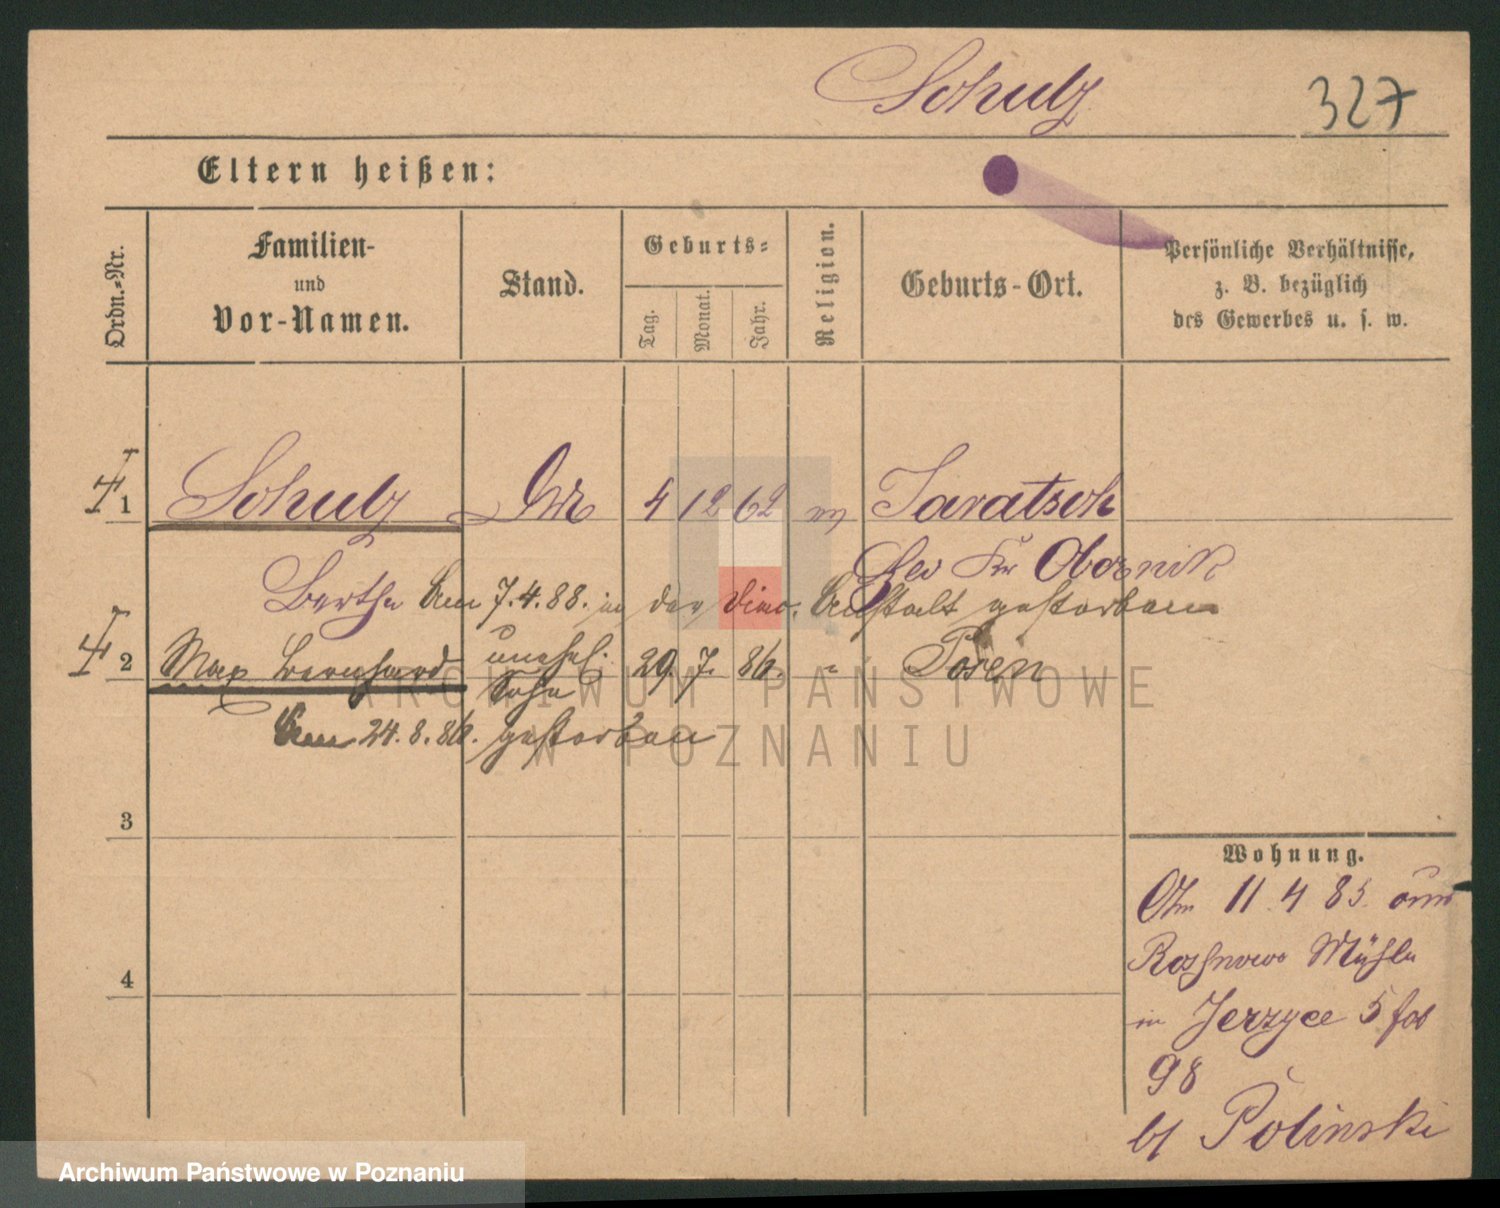 Schulz
327
Eltern heißen:
Ordn.-Nr.
Familien-
und
Vor-Namen.
Stand.
Geburts-
Tag.
Monat.
Jahr.
Religion.
Geburts-Ort.
Persönliche Verhältnisse,
z. B. bezüglich
des Gewerbes u. s. w.
1 Schulz 4 12 62 Taratsch
Kr Obornik
Bertha Am 7.4.88. in der Anstalt gestorben
2 Max Bernhard unehel. Sohn 29. 7. 86. " Posen
Am 24.8.86. gestorben
3
4
Wohnung.
11 4 85
Mühle
in Jerzyce 5
98
bf Polinski
ARCHIWUM PAŃSTWOWE
W POZNANIU
Archiwum Państwowe w Poznaniu